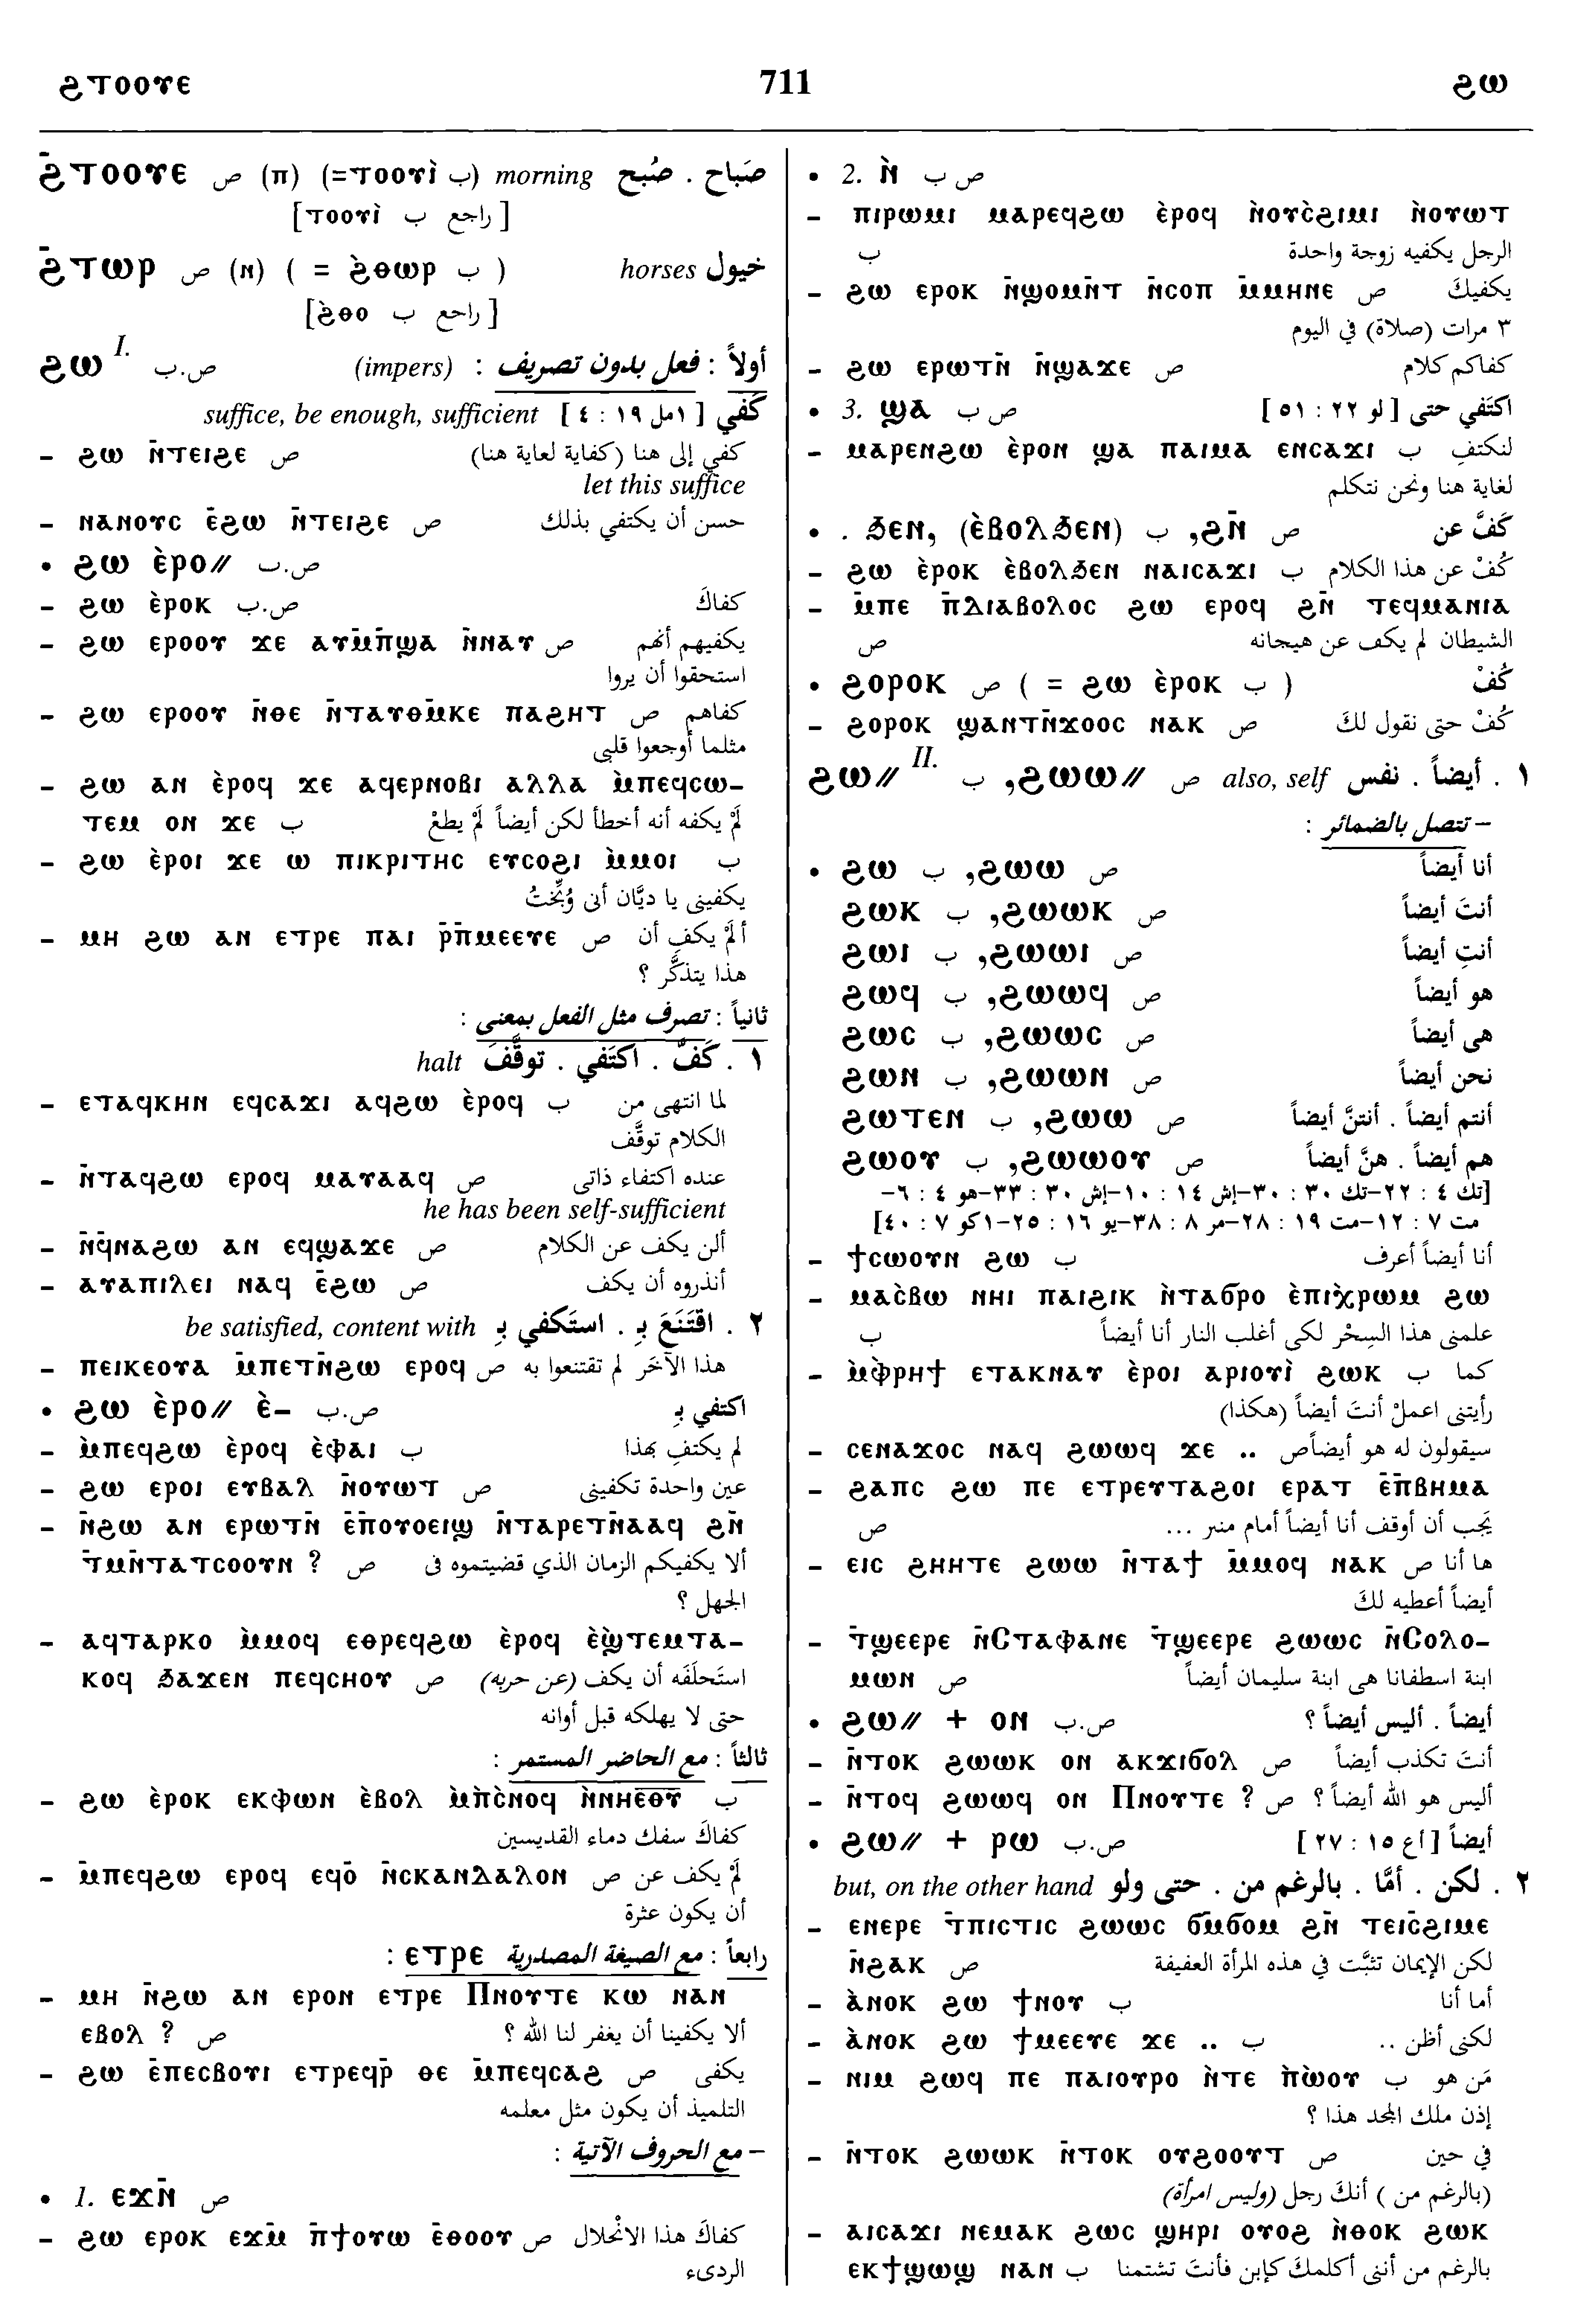 ϩⲧⲟⲟⲩⲉ 711 ϩⲱ
ϩ̄ⲧⲟⲟⲩⲉ ص (ⲡ) (=ⲧⲟⲟⲩⲓ̀ ب) morning صَباح . صُبح
[راجع ب ⲧⲟⲟⲩⲓ̀]
ϩ̄ⲧⲱⲣ ص (ⲛ) ( = ϩ̀ⲑⲱⲣ ب ) horses خيول
[راجع ب ϩ̀ⲑⲟ]
ϩⲱ I. ص.ب أولاً : فعل بدون تصريف : (impers)
كَفي [ ١مل ١٩ : ٤ ] suffice, be enough, sufficient
– ϩⲱ ⲛ̄ⲧⲉⲓϩⲉ ص كفي إلى هنا (كفاية لغاية هنا)
let this suffice
– ⲛⲁⲛⲟⲩⲥ ⲉ̄ϩⲱ ⲛ̄ⲧⲉⲓϩⲉ ص حسن أن يكتفي بذلك
• ϩⲱ ⲉ̀ⲣⲟ// ص.ب
– ϩⲱ ⲉ̀ⲣⲟⲕ ص.ب كفاكَ
– ϩⲱ ⲉⲣⲟⲟⲩ ϫⲉ ⲁⲩⲙ̄ⲡ̄ϣⲁ ⲛ̄ⲛⲁⲩ ص يكفيهم أنهم
استحقوا أن يروا
– ϩⲱ ⲉⲣⲟⲟⲩ ⲛ̄ⲑⲉ ⲛ̄ⲧⲁⲩⲑⲙ̄ⲕⲉ ⲡⲁϩⲏⲧ ص كفاهم
مثلما أوجعوا قلبى
– ϩⲱ ⲁⲛ ⲉ̀ⲣⲟϥ ϫⲉ ⲁϥⲉⲣⲛⲟⲃⲓ ⲁⲗⲗⲁ ⲙ̀ⲡⲉϥⲥⲱ-
ⲧⲉⲙ ⲟⲛ ϫⲉ ب لَمْ يكفه أنه أخطأ لكن أيضاً لَمْ يطعْ
– ϩⲱ ⲉ̀ⲣⲟⲓ ϫⲉ ⲱ ⲡⲓⲕⲣⲓⲧⲏⲥ ⲉⲩⲥⲟϩⲓ ⲙ̀ⲙⲟⲓ ب
يكفينى يا ديَّان أنى وُبِّختُ
– ⲙⲏ ϩⲱ ⲁⲛ ⲉⲧⲣⲉ ⲡⲁⲓ ⲣ̄ⲡ̄ⲙⲉⲉⲩⲉ ص ألَمْ يكفِ أن
هذا يتذكَّر ؟
ثانياً : تصرف مثل الفعل بمعنى :
١ . كَفَّ . اكتَفي . توقَّفَ halt
– ⲉⲧⲁϥⲕⲏⲛ ⲉϥⲥⲁϫⲓ ⲁϥϩⲱ ⲉ̀ⲣⲟϥ ب لما انتهى من
الكلام توقَّف
– ⲛ̄ⲧⲁϥϩⲱ ⲉⲣⲟϥ ⲙⲁⲩⲁⲁϥ ص عنده اكتفاء ذاتى
he has been self-sufficient
– ⲛ̄ϥ̄ⲛⲁϩⲱ ⲁⲛ ⲉϥϣⲁϫⲉ ص ألن يكف عن الكلام
– ⲁⲩⲁⲡⲓⲗⲉⲓ ⲛⲁϥ ⲉ̄ϩⲱ ص أنذروه أن يكف
٢ . اقتَنَعَ بـِ . استَكفي بـِ be satisfied, content with
– ⲡⲉⲓⲕⲉⲟⲩⲁ ⲙ̄ⲡⲉⲧⲛ̄ϩⲱ ⲉⲣⲟϥ ص هذا الآخَر لم تقتنعوا به
• ϩⲱ ⲉ̀ⲣⲟ// ⲉ̀– ص.ب اكتفي بـِ
– ⲙ̀ⲡⲉϥϩⲱ ⲉ̀ⲣⲟϥ ⲉ̀ⲫⲁⲓ ب لم يكتفِ بهذا
– ϩⲱ ⲉⲣⲟⲓ ⲉⲩⲃⲁⲗ ⲛ̄ⲟⲩⲱⲧ ص عين واحدة تكفينى
– ⲛ̄ϩⲱ ⲁⲛ ⲉⲣⲱⲧⲛ̄ ⲉ̄ⲡⲟⲩⲟⲉⲓϣ ⲛ̄ⲧⲁⲣⲉⲧⲛ̄ⲁⲁϥ ϩⲛ̄
ⲧ̄ⲙⲛ̄ⲧⲁⲧⲥⲟⲟⲩⲛ ? ص ألا يكفيكم الزمان الذي قضيتموه فى
الجهل ؟
– ⲁϥⲧⲁⲣⲕⲟ ⲙ̀ⲙⲟϥ ⲉⲑⲣⲉϥϩⲱ ⲉ̀ⲣⲟϥ ⲉ̀ϣⲧⲉⲙⲧⲁ-
ⲕⲟϥ ϧⲁϫⲉⲛ ⲡⲉϥⲥⲛⲟⲩ ص استَحلَفَه أن يكف (عن حربه)
حتى لا يهلكه قبل أوانه
ثالثاً : مع الحاضر المستمر :
– ϩⲱ ⲉ̀ⲣⲟⲕ ⲉⲕⲫⲱⲛ ⲉ̀ⲃⲟⲗ ⲙ̀ⲡⲥ̀ⲛⲟϥ ⲛ̀ⲛⲏⲉ̄ⲑ̄ⲩ̄ ب
كفاكَ سفك دماء القديسين
– ⲙ̄ⲡⲉϥϩⲱ ⲉⲣⲟϥ ⲉϥⲟ̄ ⲛ̄ⲥⲕⲁⲛⲇⲁⲗⲟⲛ ص لَمْ يكف عن
أن يكون عثرة
رابعاً : مع الصيغة المصدرية ⲉⲧⲣⲉ :
– ⲙⲏ ⲛ̄ϩⲱ ⲁⲛ ⲉⲣⲟⲛ ⲉⲧⲣⲉ ⲡⲛⲟⲩⲧⲉ ⲕⲱ ⲛⲁⲛ
ⲉⲃⲟⲗ ? ص ألا يكفينا أن يغفر لنا الله ؟
– ϩⲱ ⲉ̄ⲡⲉⲥⲃⲟⲩⲓ ⲉⲧⲣⲉϥⲣ̄ ⲑⲉ ⲙ̄ⲡⲉϥⲥⲁϩ ص يكفى
التلميذ أن يكون مثل معلمه
– مع الحروف الآتية :
• 1. ⲉϫⲛ̄ ص
– ϩⲱ ⲉⲣⲟⲕ ⲉϫⲙ̄ ⲡ̄ϯⲟⲩⲱ ⲉ̄ⲑⲟⲟⲩ ص كفاكَ هذا الانْحلال
الردىء
• 2. ⲛ̀ ص ب
– ⲡⲓⲣⲱⲙⲓ ⲙⲁⲣⲉϥϩⲱ ⲉ̀ⲣⲟϥ ⲛ̀ⲟⲩⲥ̀ϩⲓⲙⲓ ⲛ̀ⲟⲩⲱⲧ
الرجل يكفيه زوجة واحدة ب
– ϩⲱ ⲉⲣⲟⲕ ⲛ̄ϣⲟⲙⲛ̄ⲧ ⲛ̄ⲥⲟⲡ ⲙ̄ⲙⲏⲛⲉ ص يكفيكَ
٣ مرات (صلاة) في اليوم
– ϩⲱ ⲉⲣⲱⲧⲛ̄ ⲛ̄ϣⲁϫⲉ ص كفاكم كلام
• 3. ϣⲁ ص ب اكتَفي حتى [ لو ٢٢ : ٥١ ]
– ⲙⲁⲣⲉⲛϩⲱ ⲉ̀ⲣⲟⲛ ϣⲁ ⲡⲁⲓⲙⲁ ⲉⲛⲥⲁϫⲓ ب لنكتفِ
لغاية هنا ونحن نتكلم
• . ϧⲉⲛ, (ⲉ̀ⲃⲟⲗϧⲉⲛ) ب ,ϩⲛ̄ ص كَفَّ عن
– ϩⲱ ⲉ̀ⲣⲟⲕ ⲉ̀ⲃⲟⲗϧⲉⲛ ⲛⲁⲓⲥⲁϫⲓ ب كُفْ عن هذا الكلام
– ⲙ̄ⲡⲉ ⲡ̄ⲇⲓⲁⲃⲟⲗⲟⲥ ϩⲱ ⲉⲣⲟϥ ϩⲛ̄ ⲧⲉϥⲙⲁⲛⲓⲁ
الشيطان لم يكف عن هيجانه ص
• ϩⲟⲣⲟⲕ ص ( = ϩⲱ ⲉ̀ⲣⲟⲕ ب ) كُفْ
– ϩⲟⲣⲟⲕ ϣⲁⲛⲧⲛ̄ϫⲟⲟⲥ ⲛⲁⲕ ص كُفْ حتى نقول لكَ
ϩⲱ// II. ب ,ϩⲱⲱ// ص also, self ١ . أيضاً . نفس
– تتصل بالضمائر :
• ϩⲱ ب ,ϩⲱⲱ ص أنا أيضاً
ϩⲱⲕ ب ,ϩⲱⲱⲕ ص أنتَ أيضاً
ϩⲱⲓ ب ,ϩⲱⲱⲓ ص أنتِ أيضاً
ϩⲱϥ ب ,ϩⲱⲱϥ ص هو أيضاً
ϩⲱⲥ ب ,ϩⲱⲱⲥ ص هى أيضاً
ϩⲱⲛ ب ,ϩⲱⲱⲛ ص نحن أيضاً
ϩⲱⲧⲉⲛ ب ,ϩⲱⲱ ص أنتم أيضاً . أنتنَّ أيضاً
ϩⲱⲟⲩ ب ,ϩⲱⲱⲟⲩ ص هم أيضاً . هنَّ أيضاً
[تك ٤ : ٢٢–تك ٣٠ : ٣٠–إش ١٤ : ١٠–إش ٣٠ : ٣٣–هو ٤ : ٦–
مت ٧ : ١٢–مت ١٩ : ٢٨–مر ٨ : ٣٨–يو ١٦ : ٢٥–١كو ٧ : ٤٠]
– ϯⲥⲱⲟⲩⲛ ϩⲱ ب أنا أيضاً أعرف
– ⲙⲁⲥ̀ⲃⲱ ⲛⲏⲓ ⲡⲁⲓϩⲓⲕ ⲛ̀ⲧⲁϭⲣⲟ ⲉ̀ⲡⲓⲭ̀ⲣⲱⲙ ϩⲱ
علمنى هذا السِحْر لكى أغلب النار أنا أيضاً ب
– ⲙ̀ⲫⲣⲏϯ ⲉⲧⲁⲕⲛⲁⲩ ⲉ̀ⲣⲟⲓ ⲁⲣⲓⲟⲩⲓ̀ ϩⲱⲕ ب كما
رأيتنى اعملْ أنتَ أيضاً (هكذا)
– ⲥⲉⲛⲁϫⲟⲥ ⲛⲁϥ ϩⲱⲱϥ ϫⲉ .. سيقولون له هو أيضاًص
– ϩⲁⲡⲥ ϩⲱ ⲡⲉ ⲉⲧⲣⲉⲩⲧⲁϩⲟⲓ ⲉⲣⲁⲧ ⲉ̄ⲡ̄ⲃⲏⲙⲁ
يَجب أن أوقف أنا أيضاً أمام منبر ... ص
– ⲉⲓⲥ ϩⲏⲏⲧⲉ ϩⲱⲱ ⲛ̄ⲧⲁϯ ⲙ̄ⲙⲟϥ ⲛⲁⲕ ص ها أنا
أيضاً أعطيه لكَ
– ⲧ̄ϣⲉⲉⲣⲉ ⲛ̄ⲥⲧⲁⲫⲁⲛⲉ ⲧ̄ϣⲉⲉⲣⲉ ϩⲱⲱⲥ ⲛ̄ⲥⲟⲗⲟ-
ⲙⲱⲛ ص ابنة اسطفانا هى ابنة سليمان أيضاً
• ϩⲱ// + ⲟⲛ ص.ب أيضاً . أليس أيضاً ؟
– ⲛ̄ⲧⲟⲕ ϩⲱⲱⲕ ⲟⲛ ⲁⲕϫⲓϭⲟⲗ ص أنتَ تكذب أيضاً
– ⲛ̄ⲧⲟϥ ϩⲱⲱϥ ⲟⲛ ⲡⲛⲟⲩⲧⲉ ? ص أليس هو الله أيضاً ؟
• ϩⲱ// + ⲣⲱ ص.ب أيضاً [ أع ١٥ : ٢٧ ]
٢ . لكن . أمَّا . بالرغم من . حتى ولو but, on the other hand
– ⲉⲛⲉⲣⲉ ⲧ̄ⲡⲓⲥⲧⲓⲥ ϩⲱⲱⲥ ϭⲙ̄ϭⲟⲙ ϩⲛ̄ ⲧⲉⲓⲥ̄ϩⲓⲙⲉ
ⲛ̄ϩⲁⲕ ص لكن الإيمان تثبَّت في هذه المرأة العفيفة
– ⲁ̀ⲛⲟⲕ ϩⲱ ϯⲛⲟⲩ ب أما أنا
– ⲁ̀ⲛⲟⲕ ϩⲱ ϯⲙⲉⲉⲩⲉ ϫⲉ .. ب لكنى أظن ..
– ⲛⲓⲙ ϩⲱϥ ⲡⲉ ⲡⲁⲓⲟⲩⲣⲟ ⲛ̀ⲧⲉ ⲡ̀ⲱ̀ⲟⲩ ب مَن هو
إذن ملك المجد هذا ؟
– ⲛ̄ⲧⲟⲕ ϩⲱⲱⲕ ⲛ̄ⲧⲟⲕ ⲟⲩϩⲟⲟⲩⲧ ص في حين
(بالرغم من ) أنكَ رجل (وليس امرأة)
– ⲁⲓⲥⲁϫⲓ ⲛⲉⲙⲁⲕ ϩⲱⲥ ϣⲏⲣⲓ ⲟⲩⲟϩ ⲛ̀ⲑⲟⲕ ϩⲱⲕ
ⲉⲕϯϣⲱϣ ⲛⲁⲛ ب بالرغم من أننى أكلمكَ كإبن فأنتَ تشتمنا